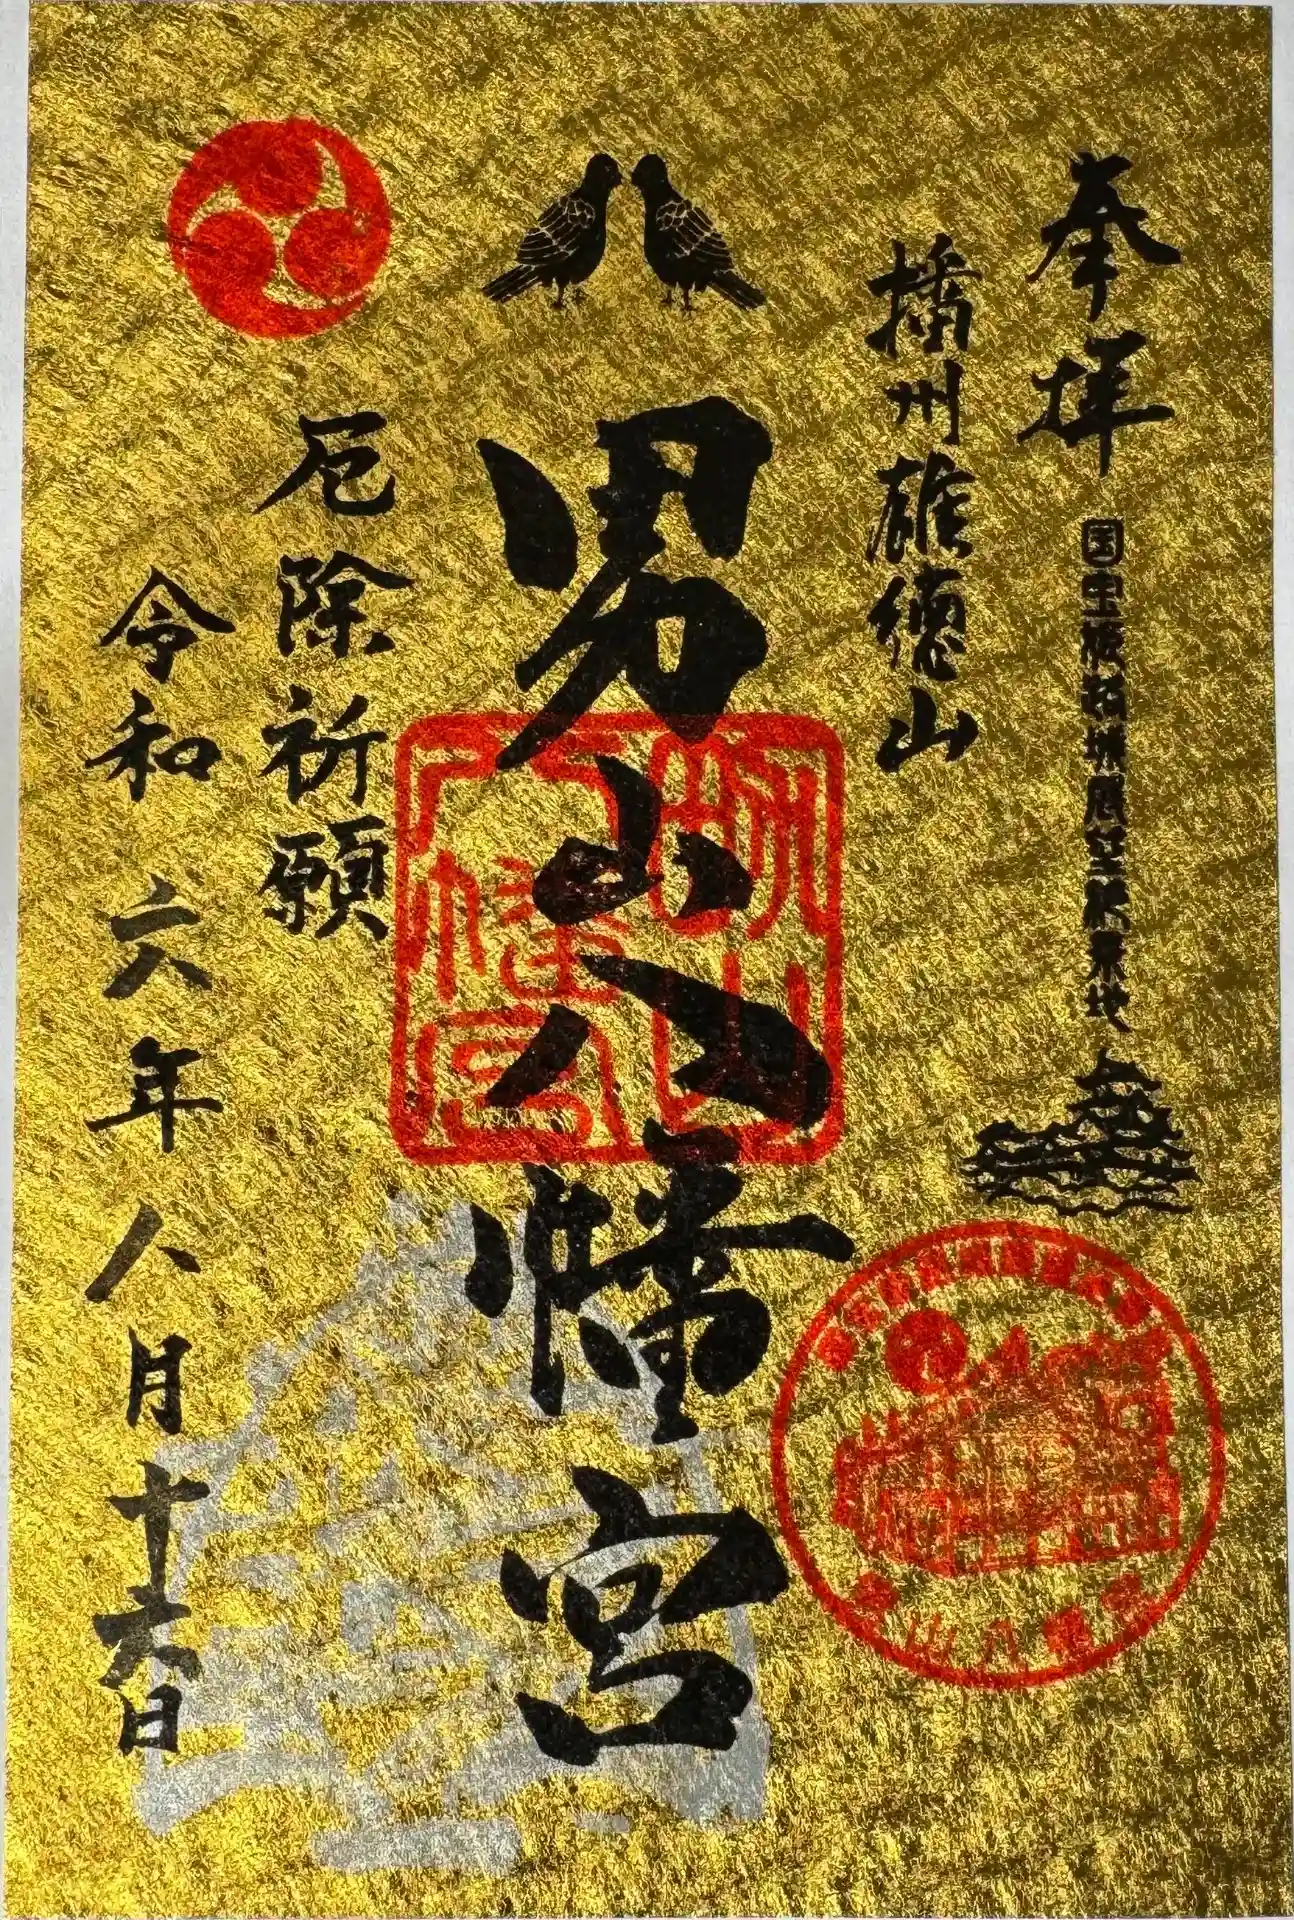 奉拝
国宝姫路城展望絶景地
播州雄徳山
男山八幡宮
厄除祈願
令和六年八月十六日
男山八幡宮